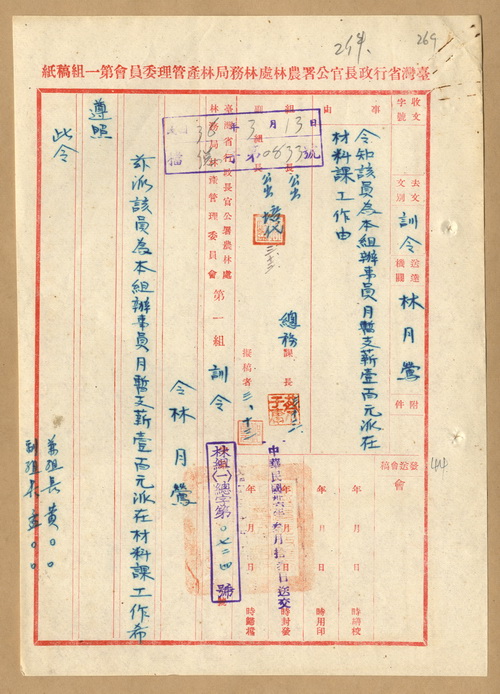 269
臺灣省行政長官公署農林處林務局林產管理委員會第一組稿紙
收文 字號
去文 文別 訓令
送達機關 林月鶯
附件
事由
令知該員為本組辦事員月暫支薪壹百元派在
材料課工作由
組長
副組長
總務課長
擬稿者 三、十三
年 月 日 時擬稿
年 月 日 時用印
年 月 日 時封發
年 月 日 時歸檔
會
36年3月13日
第0833號
中華民國卅六年叁月拾 日送交
臺灣省行政長官公署農林處
林務局林產管理委員會
第一組 訓令
林組(一)總字第〇七二四號
令林月鶯
茲派該員為本組辦事員月暫支薪壹百元派在材料課工作希
遵照
此令
兼組長黃〇〇
副組長孟〇〇